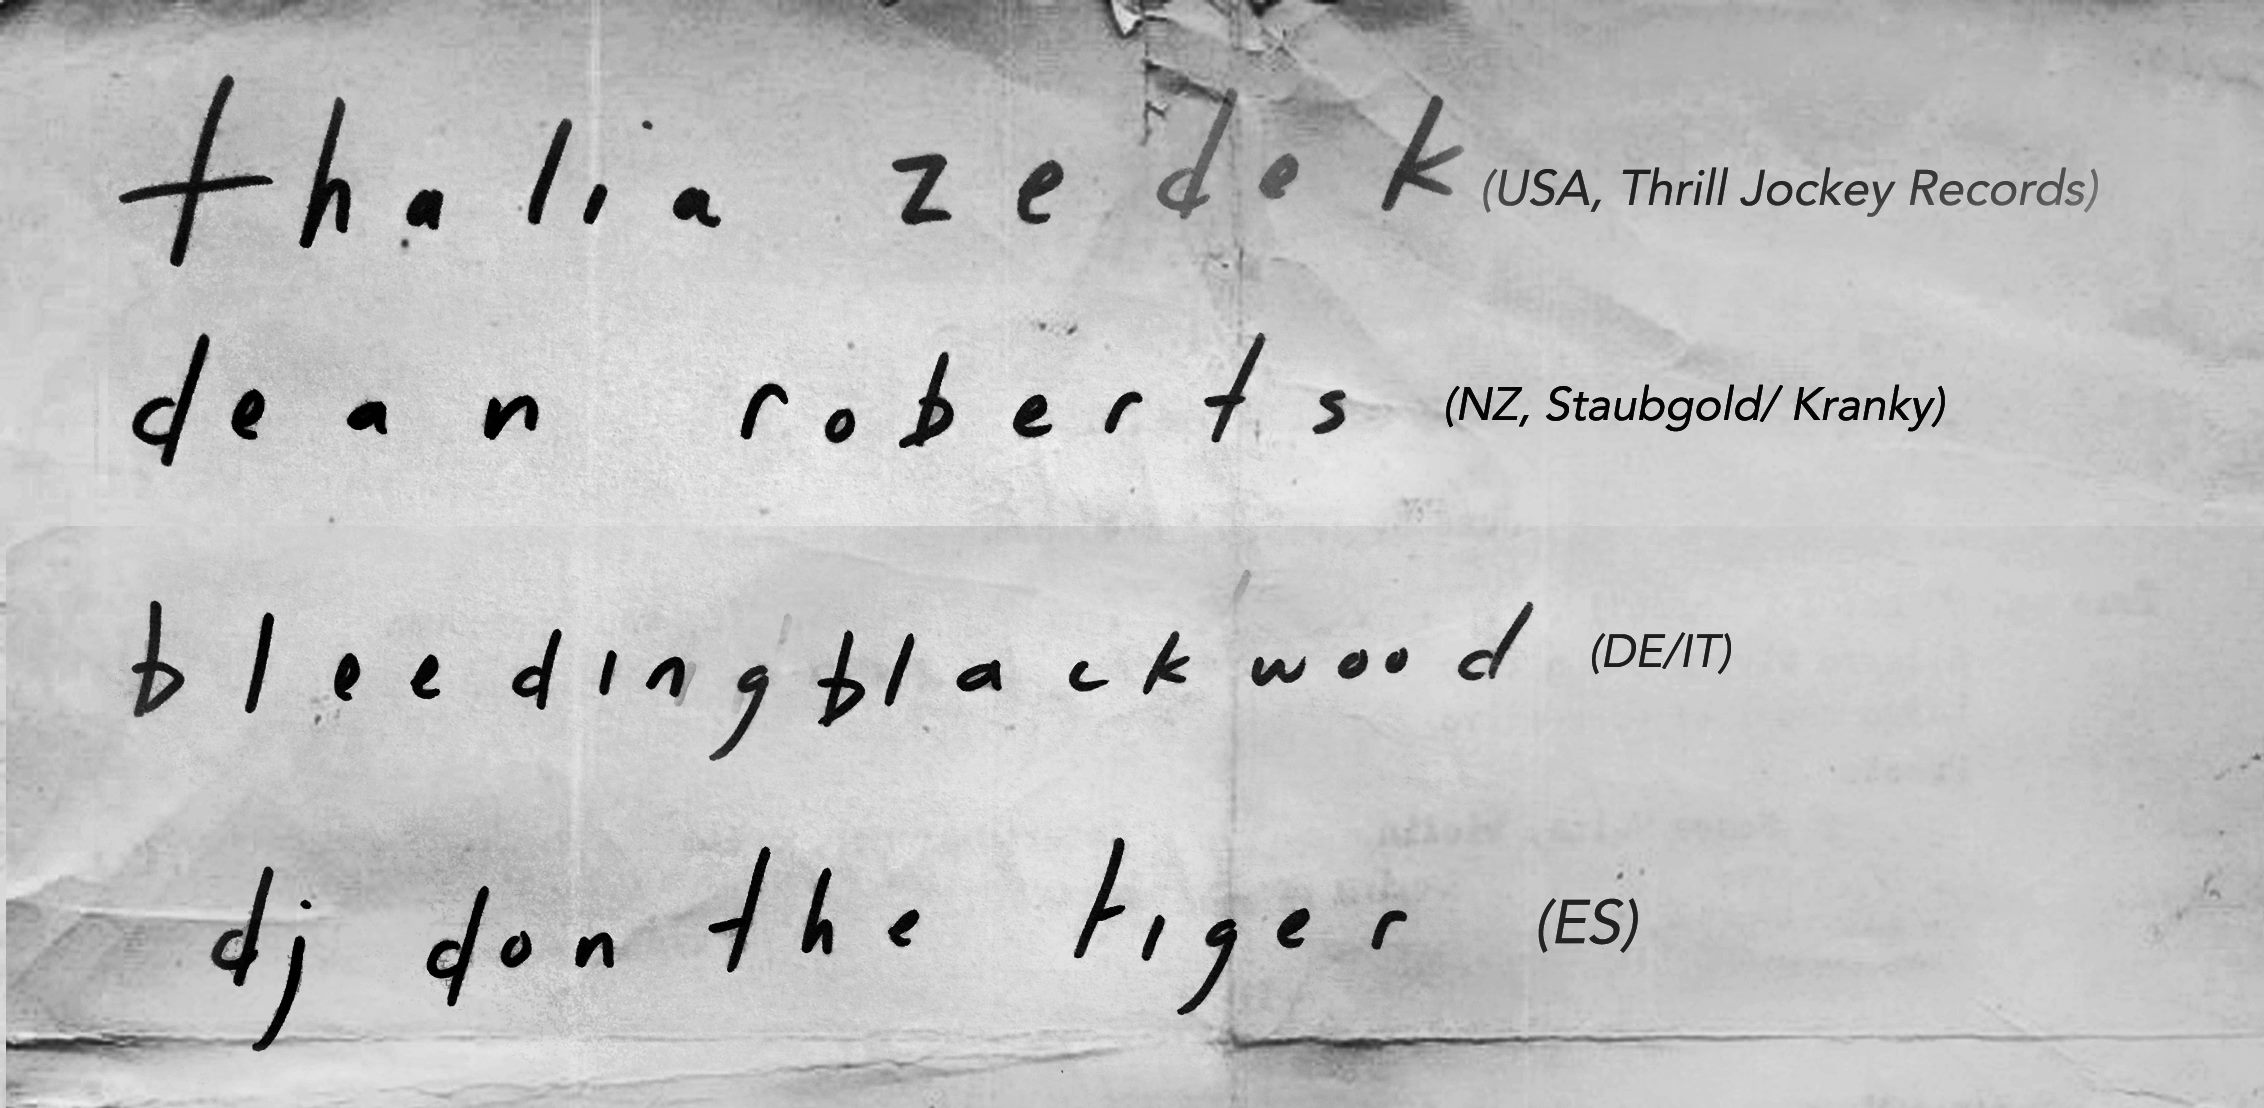 thalia zedek (USA, Thrill Jockey Records)
dean roberts (NZ, Staubgold/ Kranky)
bleedingblackwood (DE/IT)
dj don the tiger (ES)